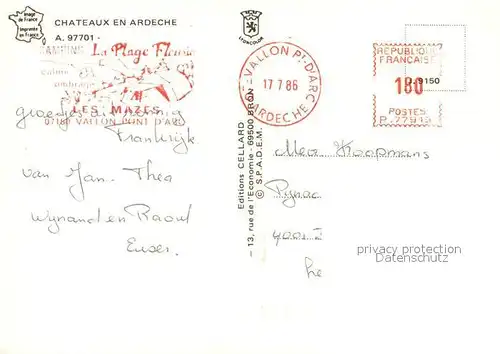 Image
de France
Imprimée
en France
CHATEAUX EN ARDECHE
A. 97701
CAMPING La Plage Fleurie
calme
ombrage
LES MAZES
07150 VALLON PONT D'ARC
groetjes uit
Frankrijk
van Jan Thea
Wynand en Raoul
LYONCOLOR
Editions CELLARD
- 13, rue de l'Economie - 69500 BRON -
© S.P.A.D.E.M.
VALLON PT-D'ARC
17 7 86
ARDECHE
REPUBLIQUE
FRANCAISE
D.9150
180
POSTES
P. 77913
Koopmans
privacy protection
Datenschutz